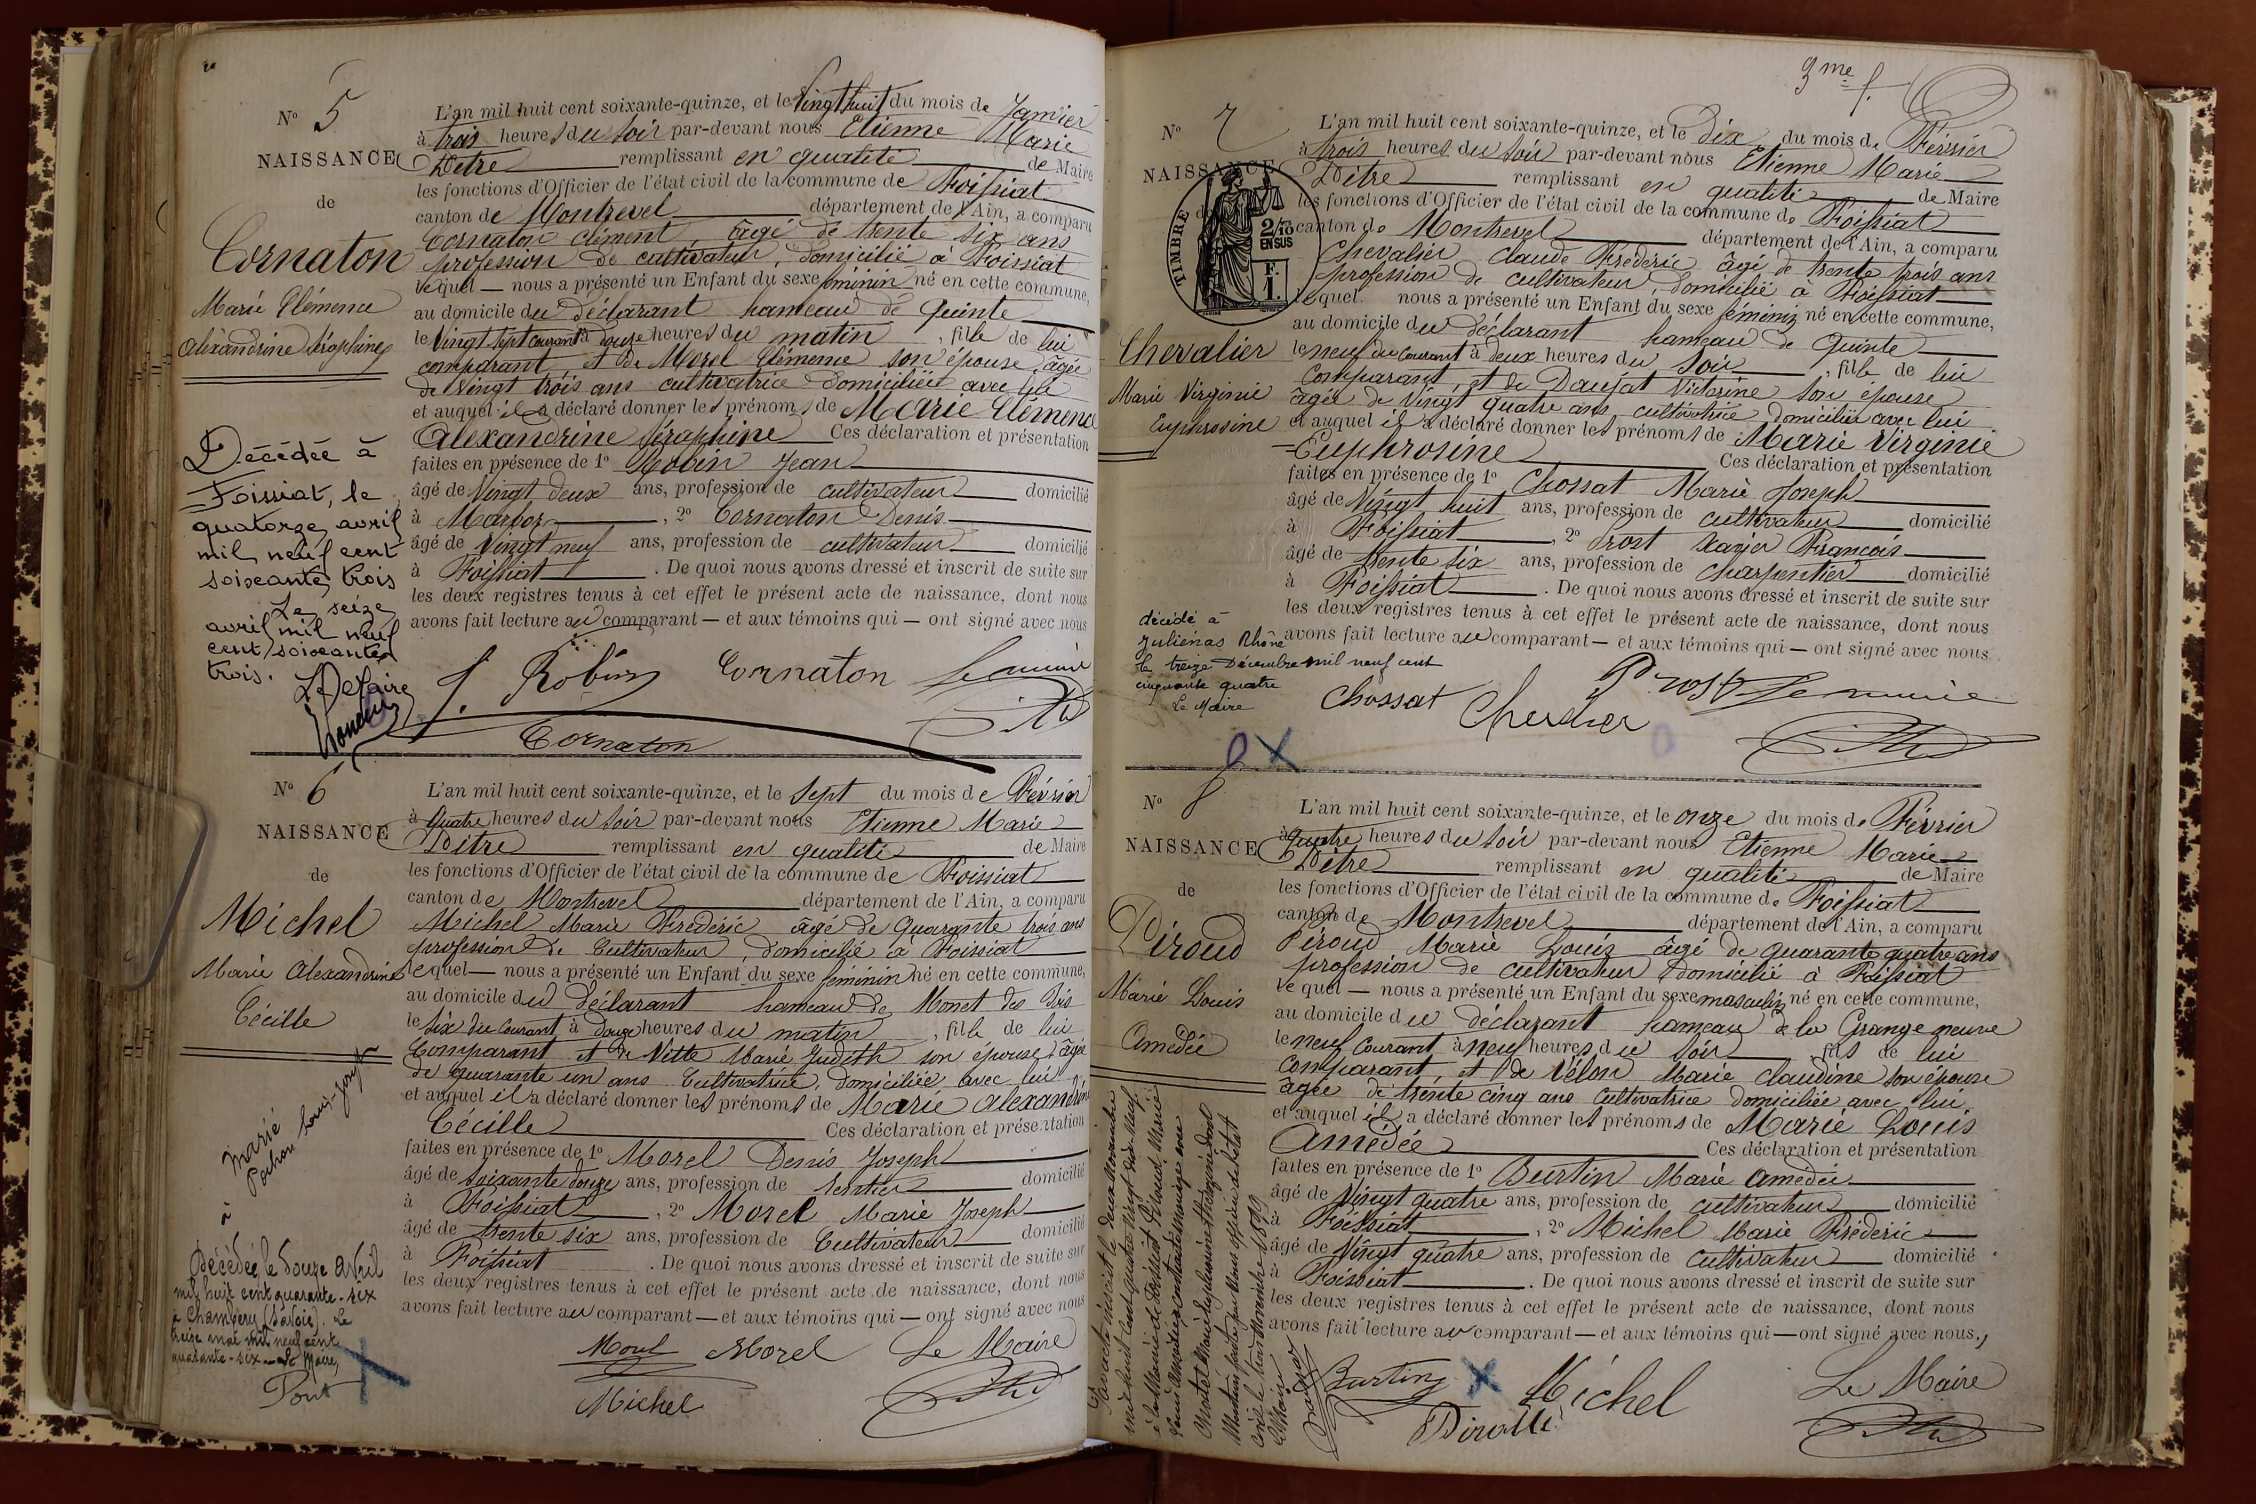 N° 5
NAISSANCE
de
Cornaton
Marie Clémence
Alexandrine Séraphine
Décédée à
Foissiat, le
quatorze avril
mil neuf cent
soixante trois
Le seize
avril mil neuf
cent soixante
trois.
L'an mil huit cent soixante-quinze, et le Vingt huit du mois de Janvier
à trois heures du soir par-devant nous Etienne Marie
Pitre remplissant en qualité de Maire
les fonctions d'Officier de l'état civil de la commune de Foissiat
canton de Montrevel département de l'Ain, a comparu
Cornaton Clément âgé de trente six ans
profession de cultivateur, domicilié à Foissiat
lequel — nous a présenté un Enfant du sexe féminin né en cette commune,
au domicile du déclarant hameau de Quinte
le Vingt sept courant à douze heures du matin, fille de lui
comparant et de Morel Clémence son épouse âgée
de Vingt trois ans cultivatrice domiciliée avec lui
et auquel il a déclaré donner les prénoms de Marie Clémence
Alexandrine Séraphine Ces déclaration et présentation
faites en présence de 1° Robin Jean
âgé de Vingt deux ans, profession de cultivateur domicilié
à Marboz, 2° Cornaton Denis
âgé de Vingt neuf ans, profession de cultivateur domicilié
à Foissiat. De quoi nous avons dressé et inscrit de suite sur
les deux registres tenus à cet effet le présent acte de naissance, dont nous
avons fait lecture au comparant — et aux témoins qui — ont signé avec nous
J. Robin Cornaton Le maire
Cornaton
N° 6
NAISSANCE
de
Michel
Marie Alexandrine
Cécille
Marié
à
Pochon Louis-Joseph
Décédée le douze Avril
mil huit cent quarante-six
à Chambéry (Savoie). Le
treize mai mil neuf cent
quarante-six. Le Maire,
Pont
L'an mil huit cent soixante-quinze, et le sept du mois de Février
à quatre heures du soir par-devant nous Etienne Marie
Pitre remplissant en qualité de Maire
les fonctions d'Officier de l'état civil de la commune de Foissiat
canton de Montrevel département de l'Ain, a comparu
Michel Marie Frédéric âgé de Quarante trois ans
profession de Cultivateur, domicilié à Foissiat
lequel — nous a présenté un Enfant du sexe féminin né en cette commune,
au domicile du déclarant hameau de Monet des Bois
le six du courant à douze heures du matin, fille de lui
Comparant et de Vitte Marie Judith son épouse âgée
de quarante un ans Cultivatrice, domiciliée avec lui
et auquel il a déclaré donner les prénoms de Marie Alexandrine
Cécille Ces déclaration et présentation
faites en présence de 1° Morel Denis Joseph
âgé de soixante douze ans, profession de rentier domicilié
à Foissiat, 2° Morel Marie Joseph
âgé de trente six ans, profession de Cultivateur domicilié
à Foissiat. De quoi nous avons dressé et inscrit de suite sur
les deux registres tenus à cet effet le présent acte de naissance, dont nous
avons fait lecture au comparant — et aux témoins qui — ont signé avec nous
Morel Le Maire
Michel
3me f.
N° 7
NAISSANCE
de
TIMBRE
2/10
EN SUS
F.
1.
Chevalier
Marie Virginie
Euphrosine
décédé à
Julienas Rhône
le treize Décembre mil neuf cent
cinquante quatre
Le Maire
L'an mil huit cent soixante-quinze, et le dix du mois de Février
à trois heures du soir par-devant nous Etienne Marie
Pitre remplissant en qualité de Maire
les fonctions d'Officier de l'état civil de la commune de Foissiat
canton de Montrevel département de l'Ain, a comparu
Chevalier Claude Frédéric âgé de trente trois ans
profession de cultivateur, domicilié à Foissiat
lequel nous a présenté un Enfant du sexe féminin né en cette commune,
au domicile du déclarant hameau de Quinte
le neuf du Courant à deux heures du soir, fille de lui
Comparant, et de Daujat Victorine son épouse
âgée de Vingt quatre ans, cultivatrice domiciliée avec lui
et auquel il a déclaré donner les prénoms de Marie Virginie
Euphrosine Ces déclaration et présentation
faites en présence de 1° Chossat Marie Joseph
âgé de Vingt huit ans, profession de cultivateur domicilié
à Foissiat, 2° Prost Xavier François
âgé de trente six ans, profession de charpentier domicilié
à Foissiat. De quoi nous avons dressé et inscrit de suite sur
les deux registres tenus à cet effet le présent acte de naissance, dont nous
avons fait lecture au comparant — et aux témoins qui — ont signé avec nous
Chossat Chevalier Prost Le maire
N° 8
NAISSANCE
de
Piroud
Marie Louis
Amédée
L'an mil huit cent soixante-quinze, et le onze du mois de Février
à quatre heures du soir par-devant nous Etienne Marie
Pitre remplissant en qualité de Maire
les fonctions d'Officier de l'état civil de la commune de Foissiat
canton de Montrevel département de l'Ain, a comparu
Piroud Marie Louis âgé de quarante quatre ans
profession de cultivateur domicilié à Foissiat
lequel — nous a présenté un Enfant du sexe masculin né en cette commune,
au domicile du déclarant hameau de la Grange neuve
le neuf courant à neuf heures du soir fils de lui
comparant, et de Vélon Marie Claudine son épouse
âgée de trente cinq ans Cultivatrice domiciliée avec lui
et auquel il a déclaré donner les prénoms de Marie Louis
Amédée Ces déclaration et présentation
faites en présence de 1° Burtin Marie Amédée
âgé de Vingt quatre ans, profession de cultivateur domicilié
à Foissiat, 2° Michel Marie Fréderic
âgé de Vingt quatre ans, profession de cultivateur domicilié
à Foissiat. De quoi nous avons dressé et inscrit de suite sur
les deux registres tenus à cet effet le présent acte de naissance, dont nous
avons fait lecture au comparant — et aux témoins qui — ont signé avec nous,
Burtin Michel Le Maire